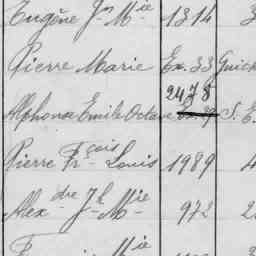 Eugène Jn Mie 1314 3
Pierre Marie Ex. 33 Guich
2478
Alphonse Emile Octave S. E.
Pierre Frçois Louis 1989 4
Alexdre Jh Mie 972 2
Mie